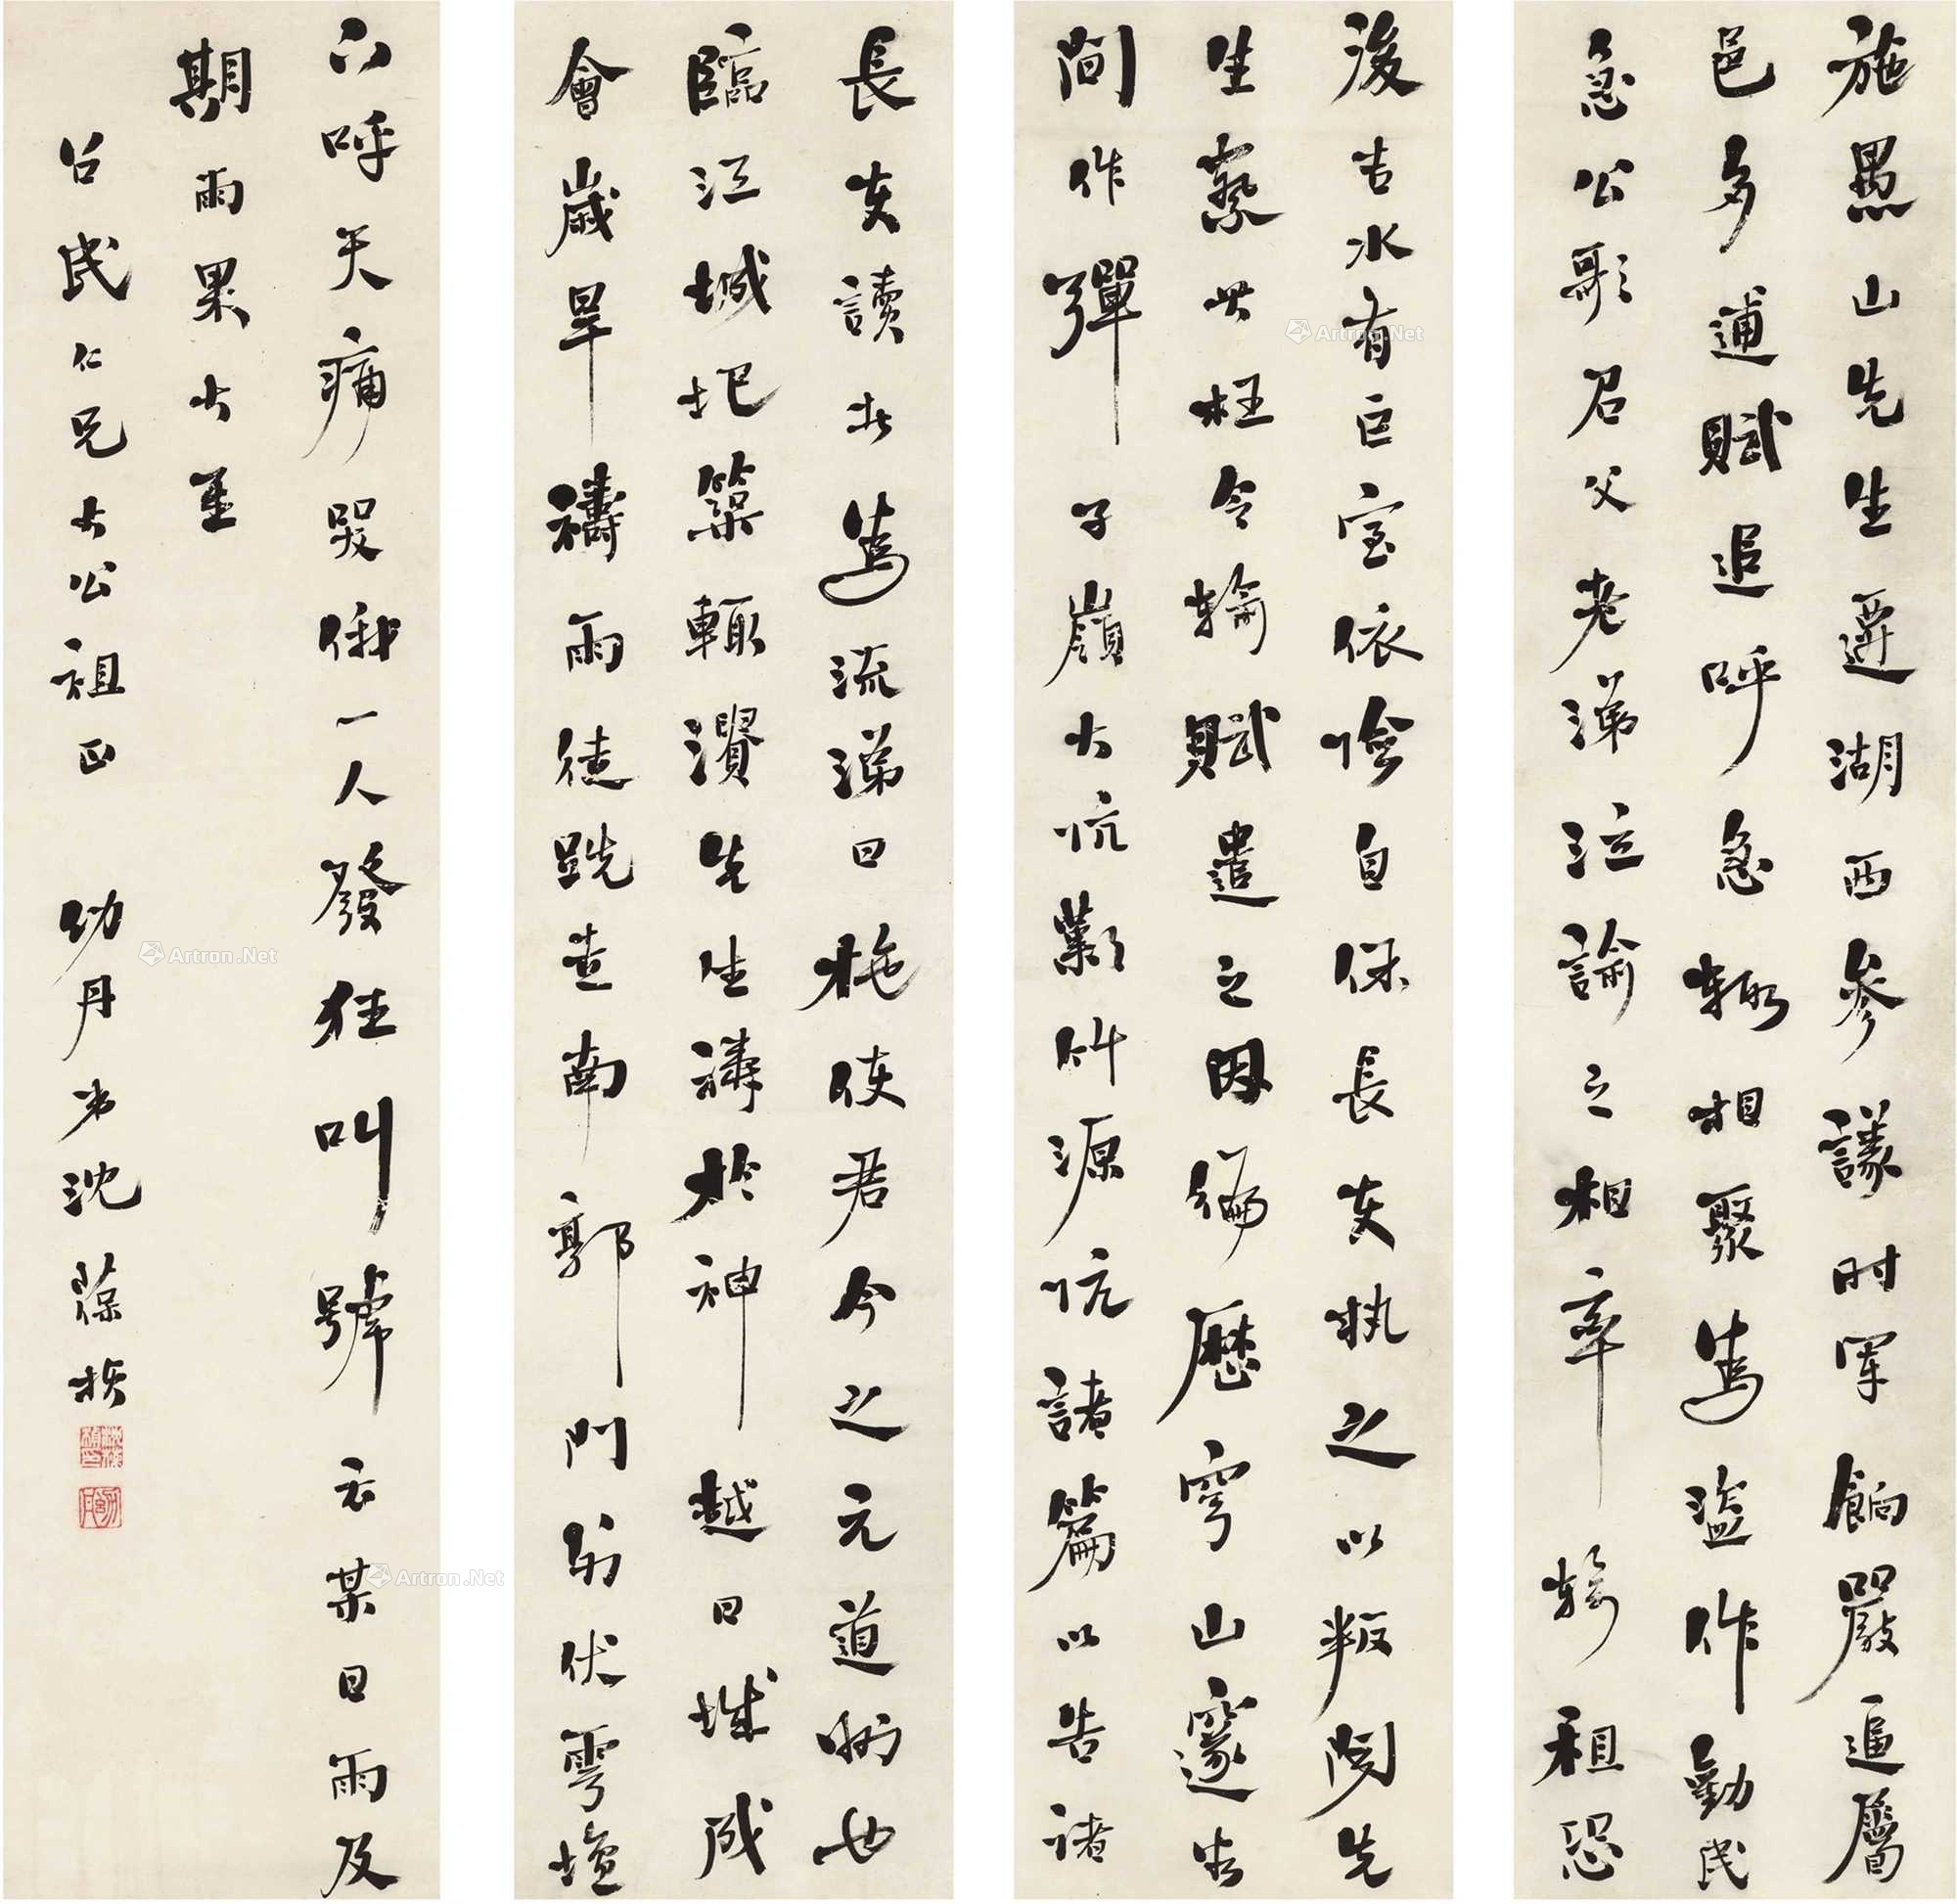 施愚山先生遷湖西參議时军餉嚴逼屬
邑多逋賦追呼急輙相聚為盜作勸民
急公歌召父老涕泣諭之相率輸租恐
後吉水有巨室依險自保長吏執之以叛聞先
生察其枉令輸賦遣之因徧歷窮山邃谷
間作彈子嶺大坑歎竹源坑諸篇以告諸
長吏讀者為流涕曰施使君今之元道州也
臨江城圯築輒潰先生禱於神越日城成
會歲旱禱雨徒跣走南郭門外伏雩壇
下呼天痛哭俄一人發狂叫號云某日雨及
期雨果大至
召民仁兄大公祖正 幼丹弟沈葆楨
Artron.Net
Artron.Net
Artron.Net